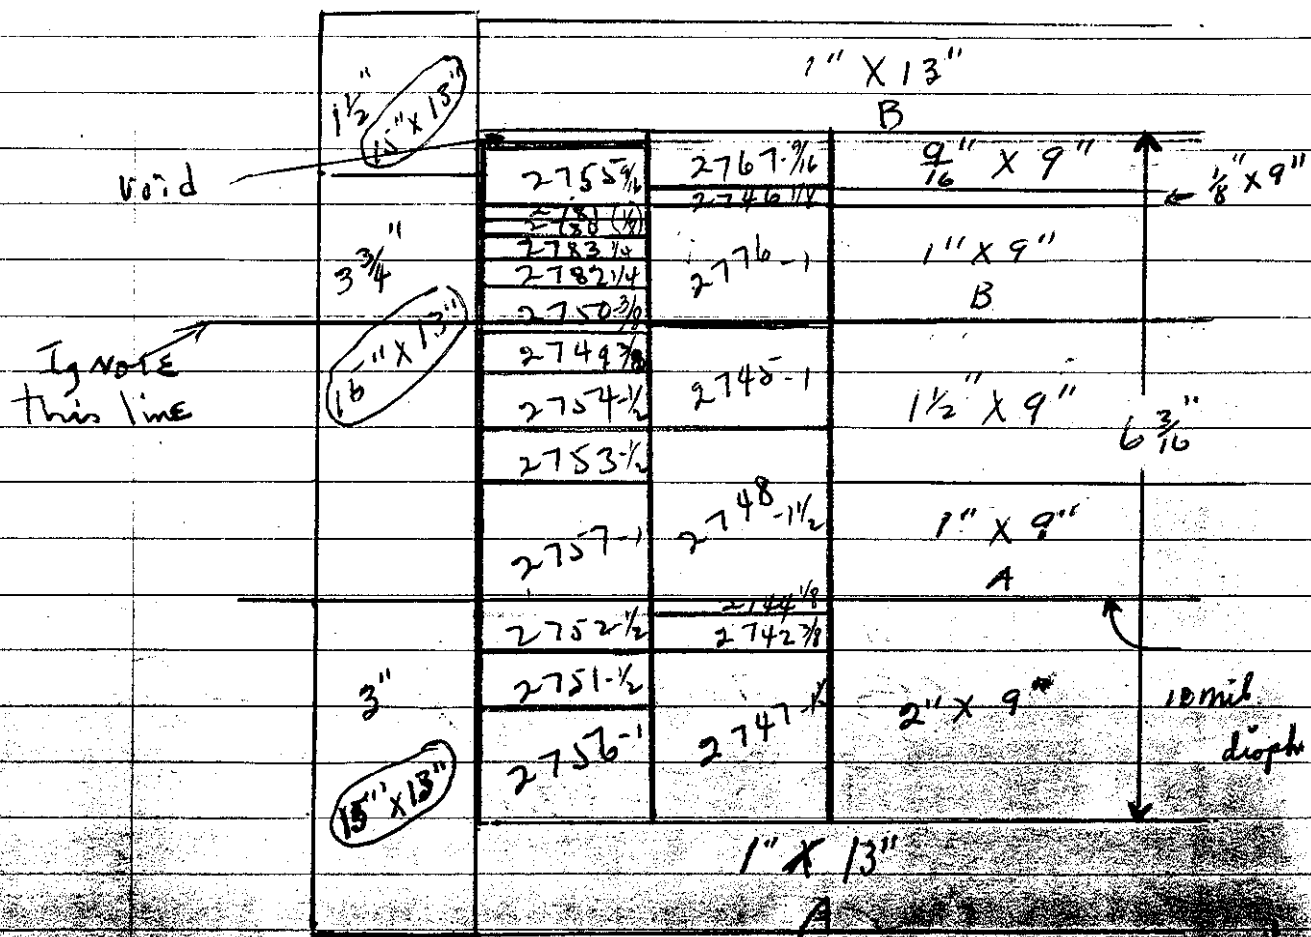 1" X 13"
B
1 1/2"
15" X 13"
void
3 3/4"
16" X 13"
IgNorE
this line
3"
15" X 13"
2755 9/16
2781 (1/8)
2780 (1/8)
2783 1/4
2782 1/4
2750-3/8
2749 3/8
2754-1/2
2753-1/2
2757-1
2752-1/2
2751-1/2
2756-1
2767-9/16
2746 1/8
2776-1
2745-1
2748-1 1/2
2744 1/8
2742 3/8
2747-
9/16" X 9"
1/8" X 9"
1" X 9"
B
1 1/2" X 9"
6 3/16"
1" X 9"
A
2" X 9"
10 mil
1" X 13"
A